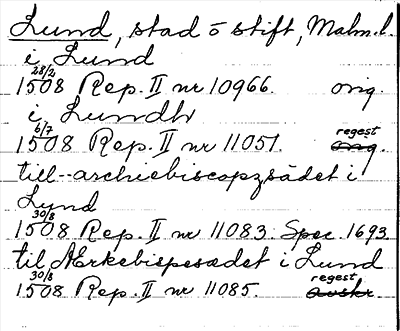 Lund, stad o stift, Malm.l.
i Lund
28/2
1508 Rep. II nr 10966. orig.
i Lundh
6/7 regest
1508 Rep. II nr 11051. orig.
till--archiebiscopzsädet i
Lund
30/8
1508 Rep. II nr 11083. Spec. 1693
til Ærkebispesædet i Lund
30/8 regest
1508 Rep. II nr 11085. avskr.